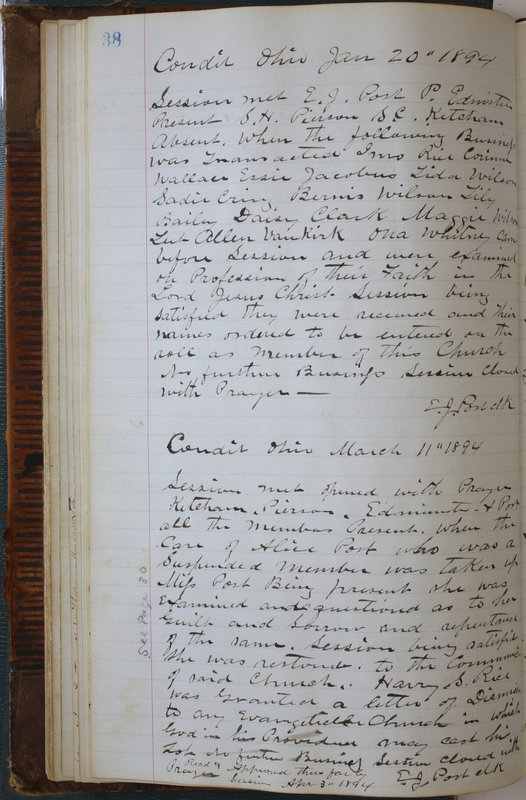 38
Condit Ohio Jan 20" 1894
Session met E. J. Post P. Edminster
Present S. H. Pierson S C. Ketcham
Absent. When the following Business
was Transacted Imo Rice Corinne
Wallace Essie Jacobus Lida Wilson
Sadie Bernis Wilson Lily
Baily Daisy Clark Maggie Wilson
Allen VanKirk Ona Whitney Came
before Session and were examined
on Profession of their Faith in the
Lord Jesus Christ Session being
satisfied they were received and their
names ordered to be entered on the
roll as member of this Church
No further Business Session Closed
with Prayer —
E. J. Post clk
Condit Ohio March 11" 1894
Session met opened with Prayer
Ketcham. Pierson. & Post
all the members Present. when the
Case of Alice Post who was a
Suspended member was taken up
Miss Post Being present she was
Examined and questioned as to her
guilt and sorrow and repentance
of the same. Session being satisfied
she was restored. to the
of said Church. Harry S. Rice
was Granted a letter of
to any Evangelical Church in which
God in his Providence may cast his
Lot No further Business Session Closed with
Prayer E. J. Post clk
Read & Approved thus far by
Session Apr 3" 1894
See Page 30